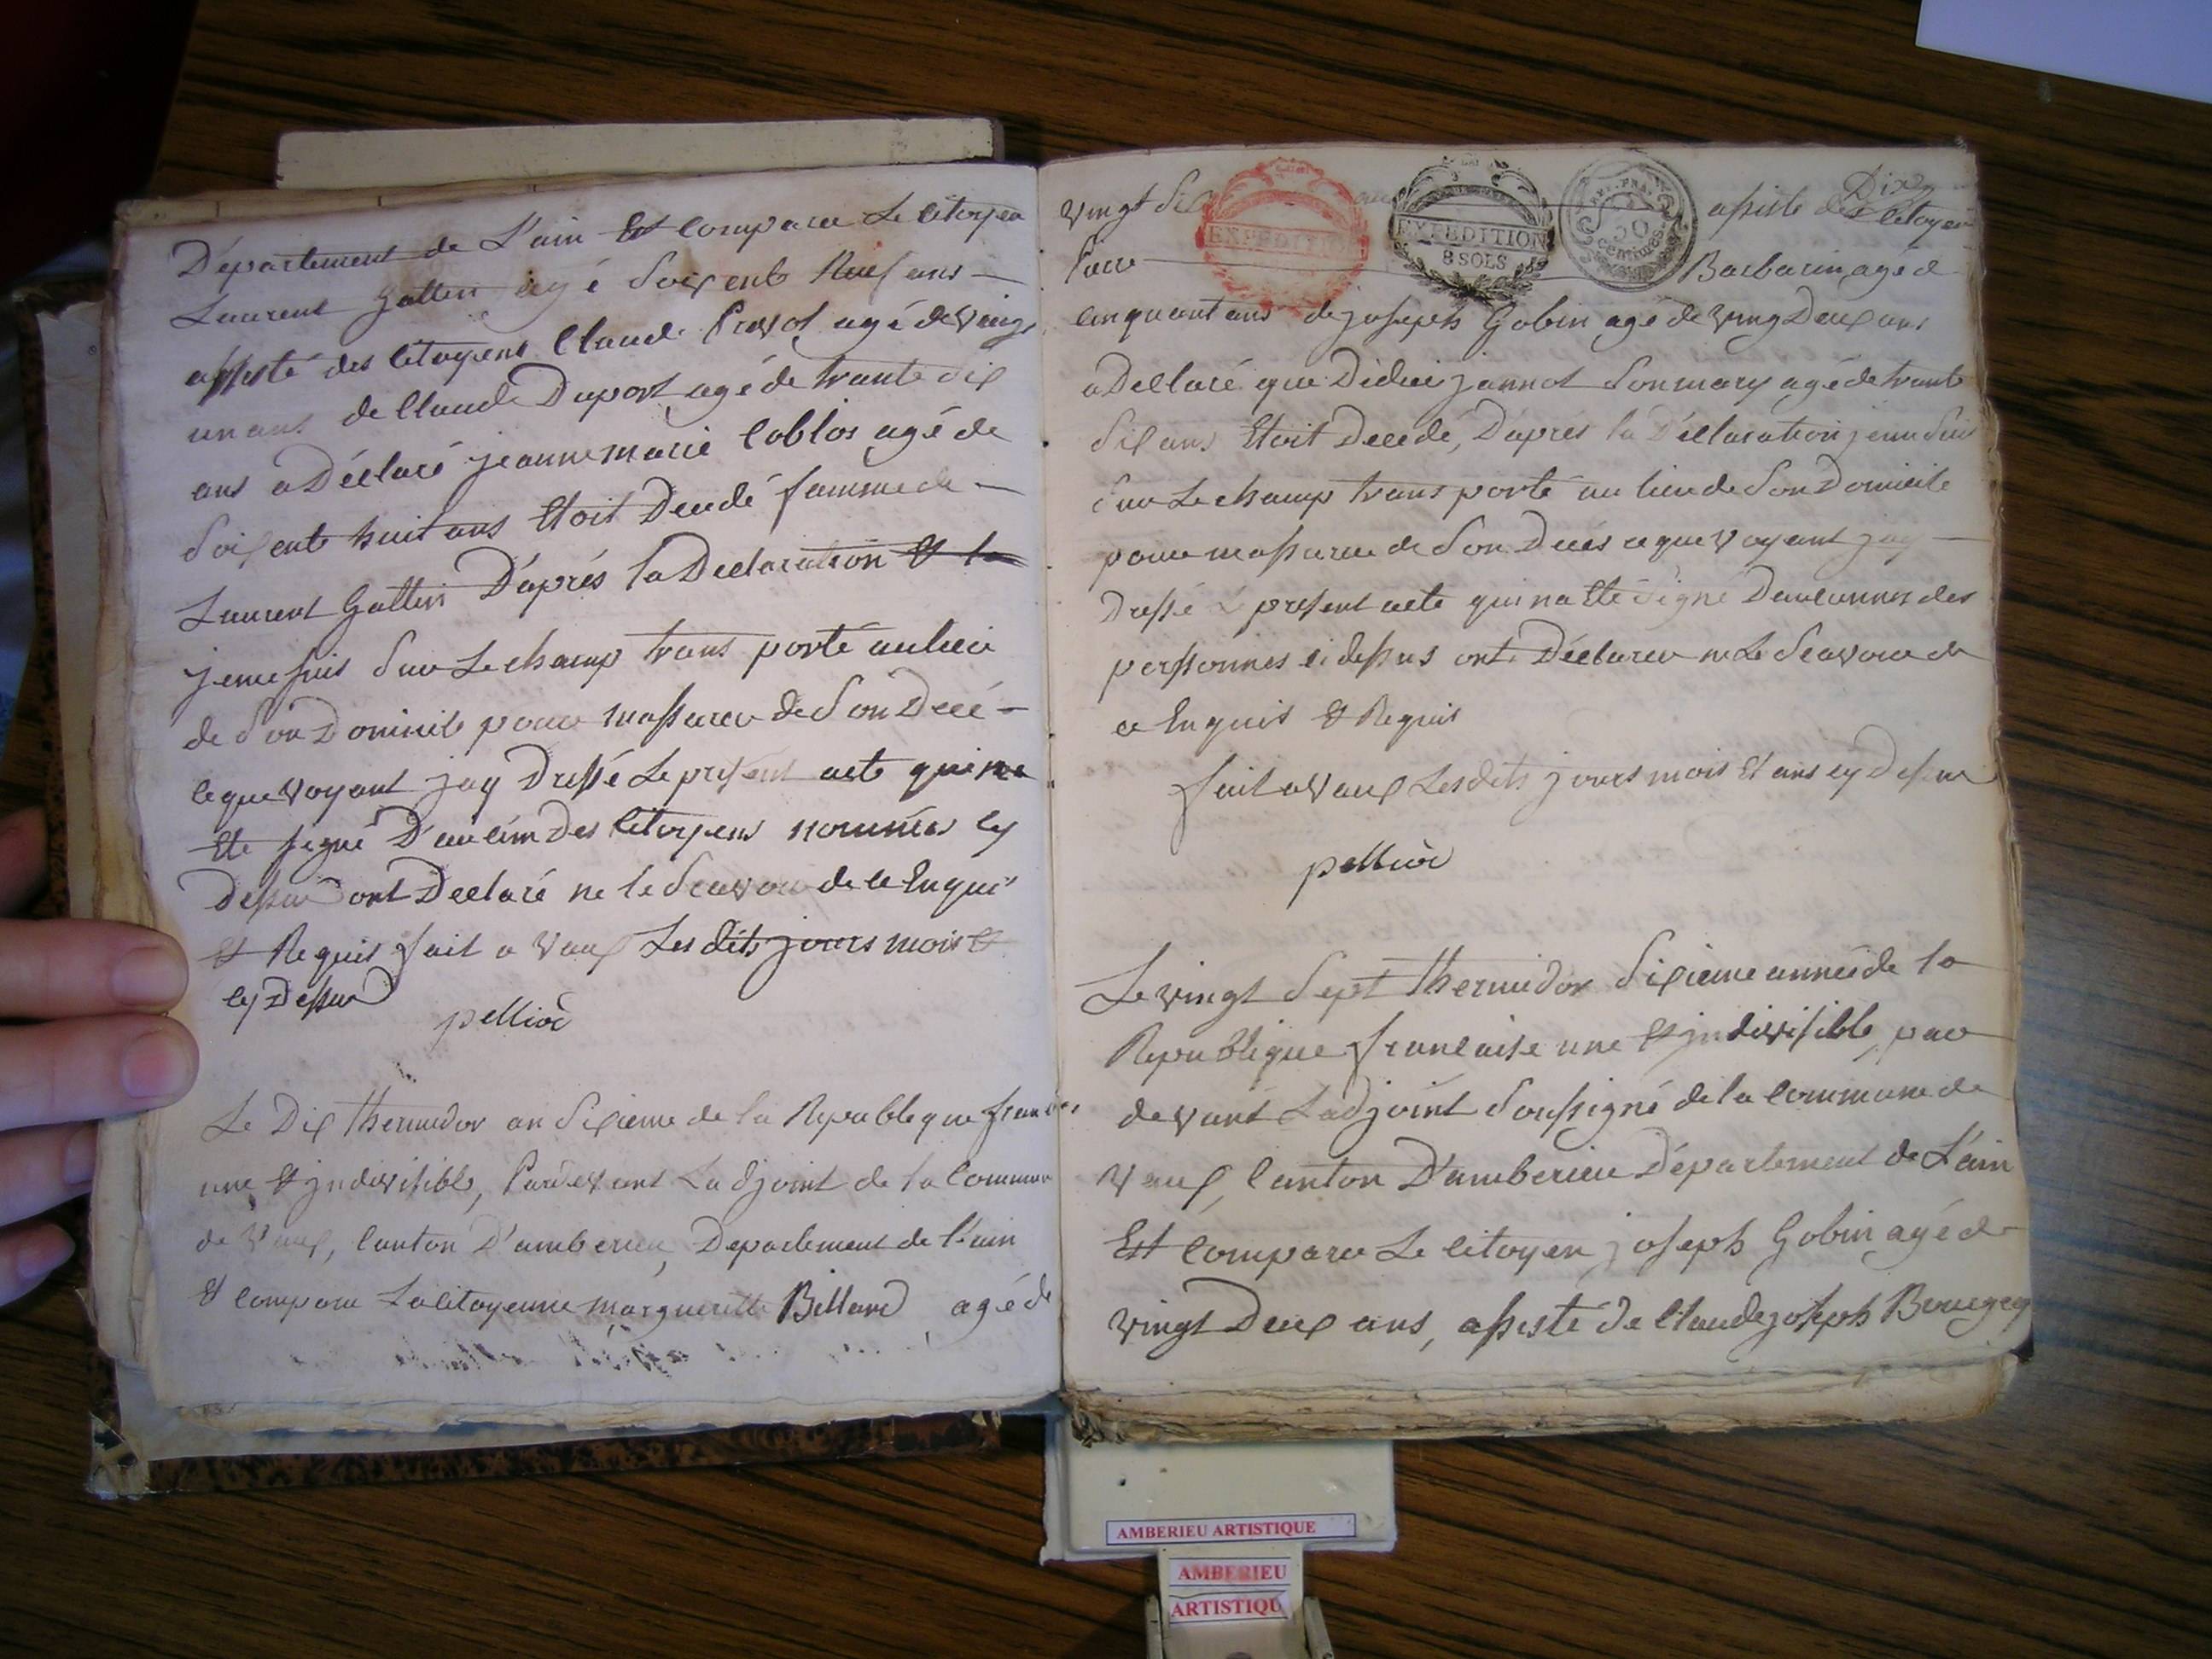 Département de L'ain Est comparu Le Citoyen
Laurent Gallin agé Soixente Neuf ans
assisté des Citoyens Claude Pravot agé de Vaingt
un ans de Claude Duport agé de trante Six
ans a Déclaré jeanne marie Coblos agé de
Soixente huit ans Etoit Décédé famme de
Laurent Gallin D'aprés la Declaration Et la
je me suis Sur Le champ trans porté au lieu
de Son Domicile pour massurer de Son Décé
ce que Voyant jay Dressé Le present acte qui na
Ete signé D'aucun Des Citoyens nommés cy
Dessus ont Declaré ne le Scavoir de ce Enquis
Et Requis fait a Vaux Les dits jours mois Et
cy Dessus
pellior
Le Dix thermidor an Sixieme de la Republeque francai
une Et jndivisible, Pardevant Ladjoint de la Commun
de Vaux, Canton D'amberieu, Departement de l'ain
Et comparu La Citoyenne margueritte Billand agé de
vingt Six assisté des Dix Citoyen
EXPEDITION
EXPEDITION
8 SOLS
REP. FRA.
50
centimes
Pierre Barbarin agé de
cinquant ans de joseph Gobin agé de ving Deux ans
a Declaré que Didier jannot Son mary agé de trante
Six ans Etoit Décédé, D'aprés la Déclaration je me Suis
Sur Le champ trans porté au lieu de Son Domicile
pour massurer de Son Decés ce que Voyant jay
Dressé Le present acte qui na Eté Signé Daucunnes des
perssonnes ci dessus ont Déclarer ne Le Scavoir de
ce Enquis Et Requis
fait a Vaux Les dits jours mois Et ans cy Dessus
pellior
Le vingt Sept thermidor Sixieme année de la
Republique francaise une Et jndivisible, par
devant Ladjoint Soussigné de la Commune de
Vaux, Canton D'amberieu Département de L'ain
Est Comparu Le Citoyen joseph Gobin agé de
vingt Deux ans, assisté de Claude joseph Bourgey
AMBERIEU ARTISTIQUE
AMBERIEU
ARTISTIQU